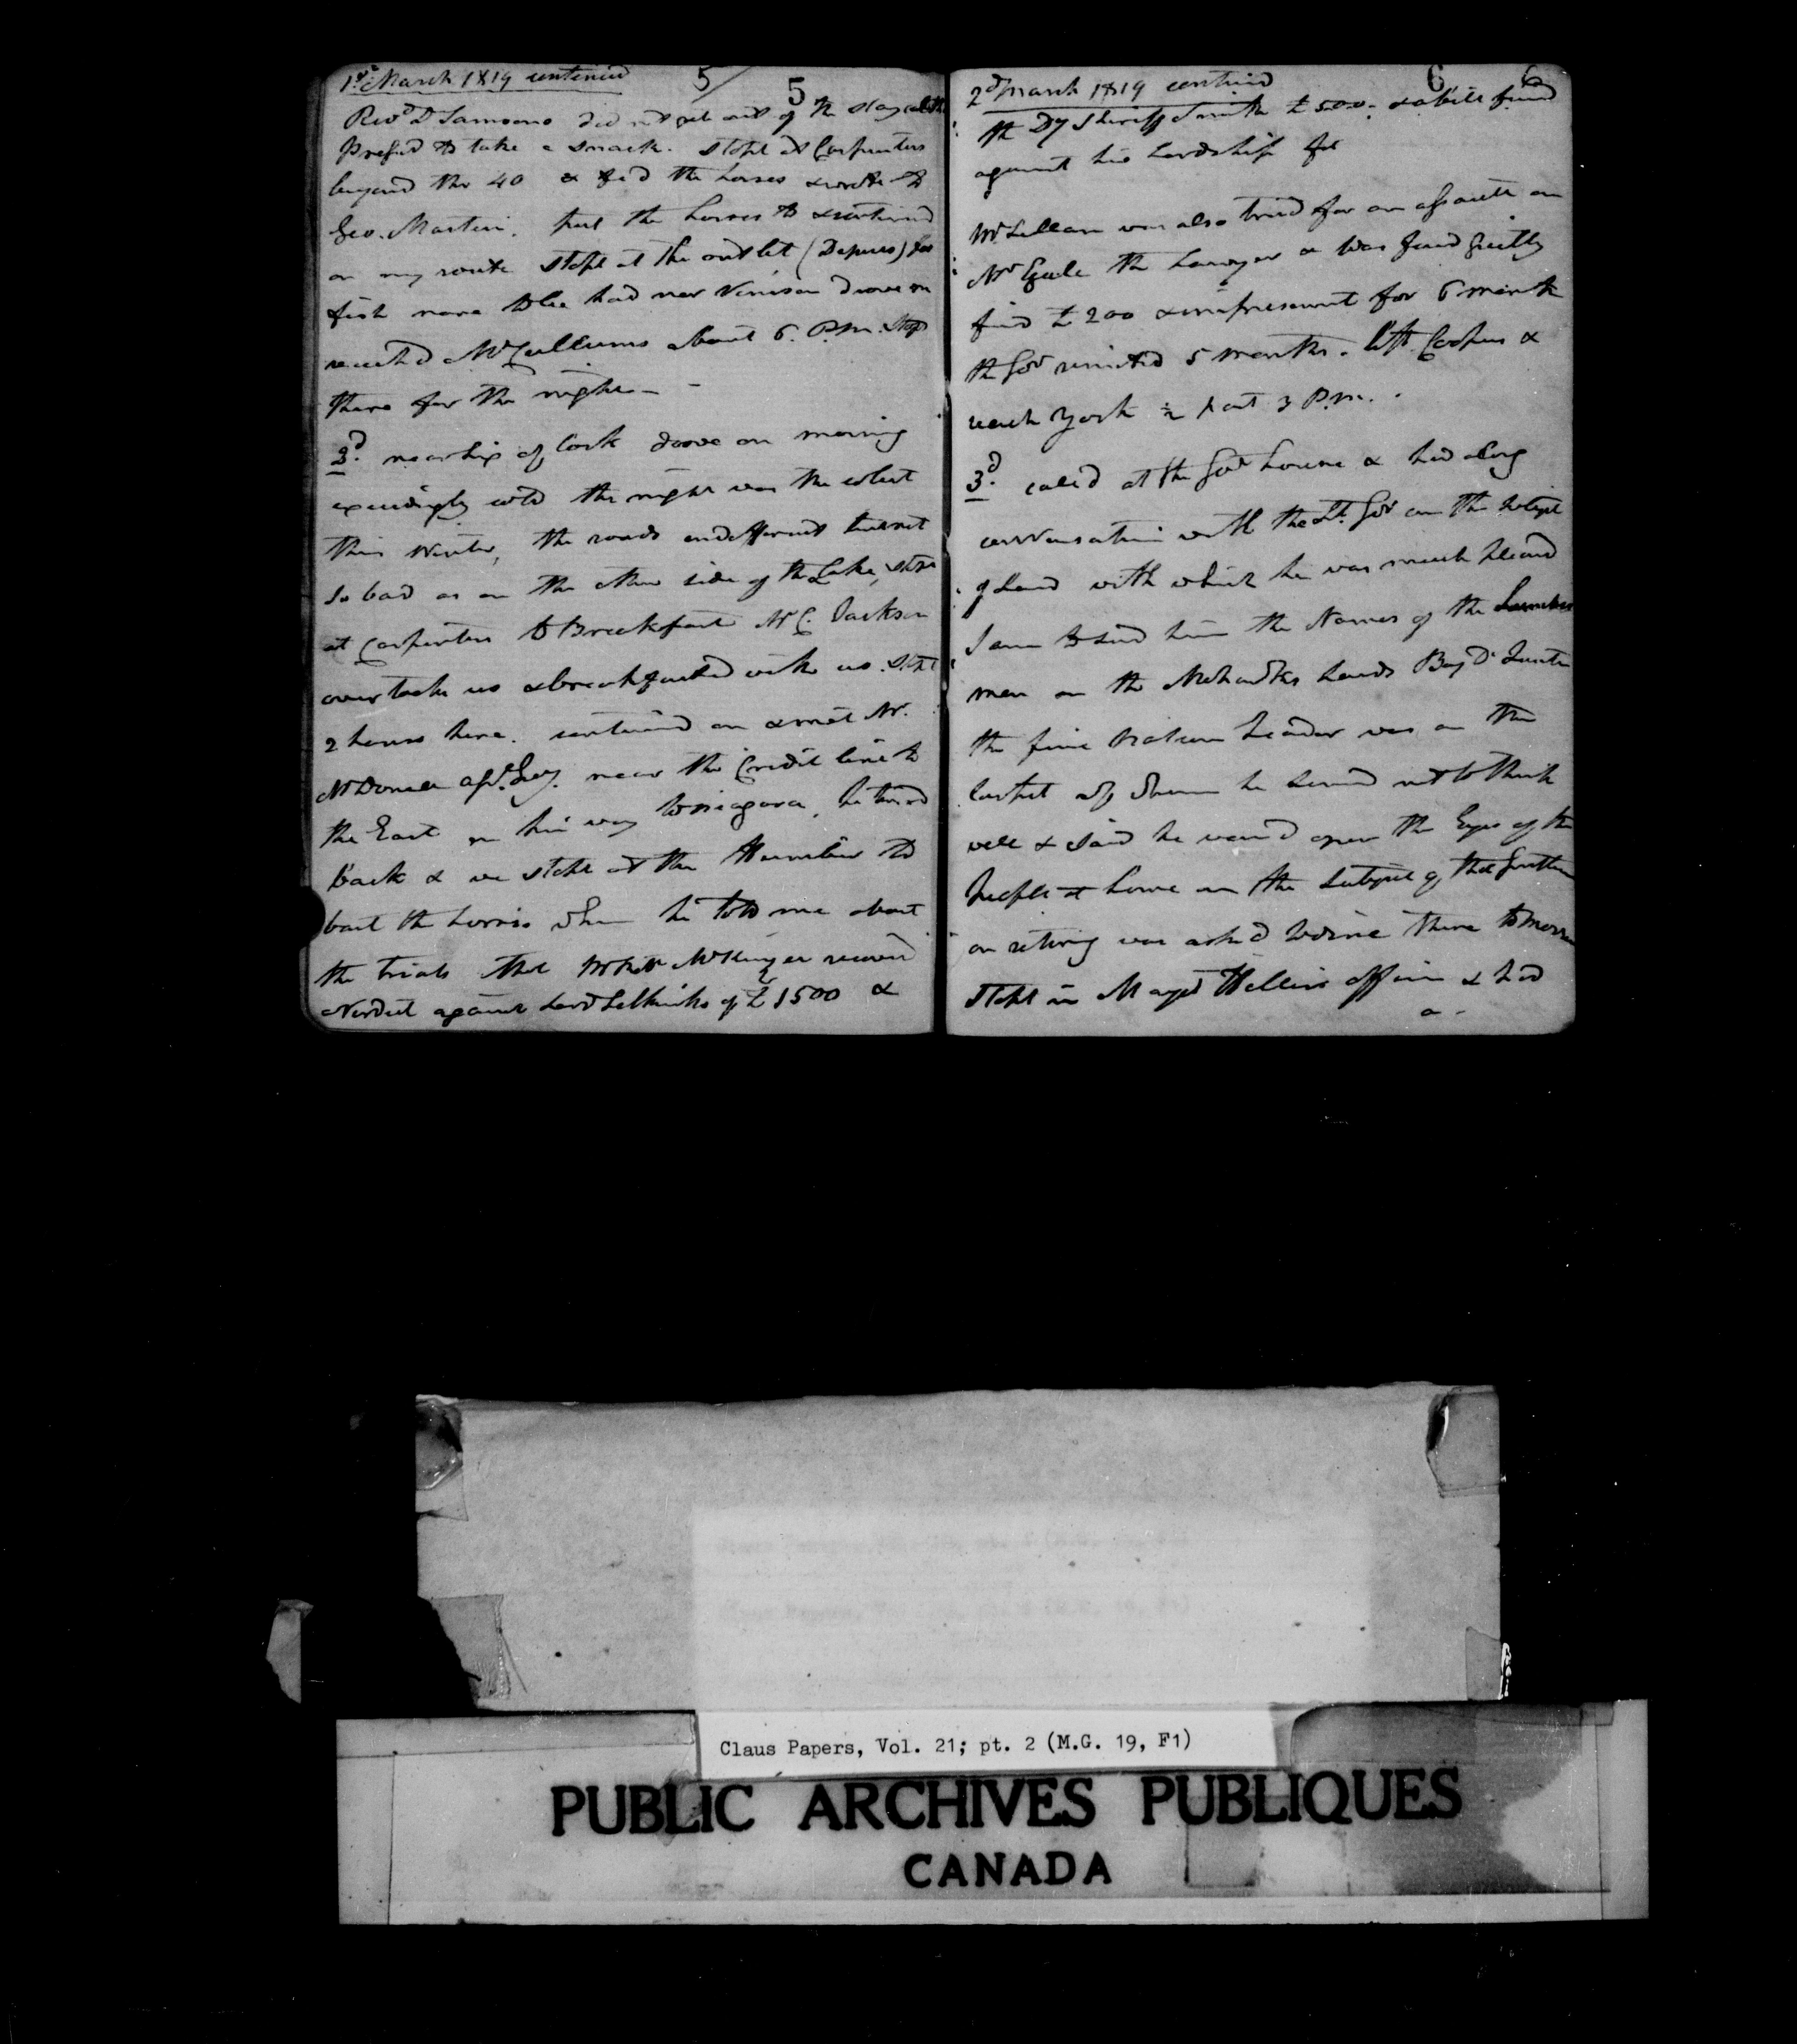 1st March 1819 continued 5 5
Revd D Samsons did not get out of the
to take a snack. Stopt at Carpenters
beyond the 40 & fed the horses & wrote to
Geo. Martin. put the horses to & continued
on my route stopt at the outlet (Depues) for
fish none to be had nor Venison drove on
reach'd McCullums about 6. P.M. Stopt
there for the night —
2d. near six of Clock drove on morning
exceedingly cold the night was the coldest
this Winter, the roads indifferent but not
so bad as on the other side of the Lake, stopt
at Carpenters to Breakfast Mr C. Jackson
overtook us & breakfasted with us. Stopt
2 hours here. continued on & met Mr.
McDonell near the Credit line to
the East on his way to Niagara, he turned
back & we stopt at the Humber to
bait the horses when he told me about
the trials that recovered
Verdict against Lord Selkirk of £1500 &
2d March 1819 continued 6 6
the Dy Sheriff Smith £500. & a bill found
against his Lordship for
McLellan was also tried for an assault on
Mr the Lawyer & was found guilty
fined £200 & imprisonment for 6 months
the Govr remitted 5 months. left Coopers &
reach York ½ past 3 P.M.
3d. called at the Govt house & had a long
conversation with the Lt. Govr on the subject
of land with which he was much pleased
I am to send him the Names of the
men on the Mohawks lands Bay D. Quinte
the five Nation Leader was on the
of whom he seemed not to think
well & said he would open the Eyes of the
People at home on the subject of that Gentleman
on retiring was asked to dine there tomorrow
Stopt in Major Hilliers office & had
a -
Claus Papers, Vol. 21; pt. 2 (M.G. 19, F1)
PUBLIC ARCHIVES PUBLIQUES
CANADA